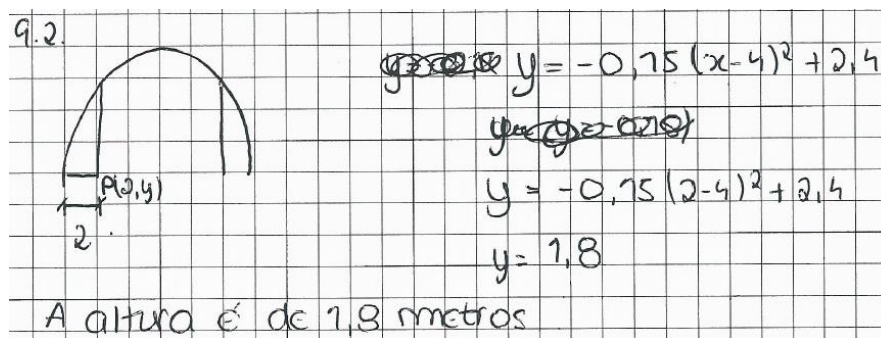 9.2.
y = -0,15 (x-4)² + 2,4
y = -0,15 (2-4)² + 2,4
P(2,y)
2
y = 1,8
A altura é de 1,8 metros